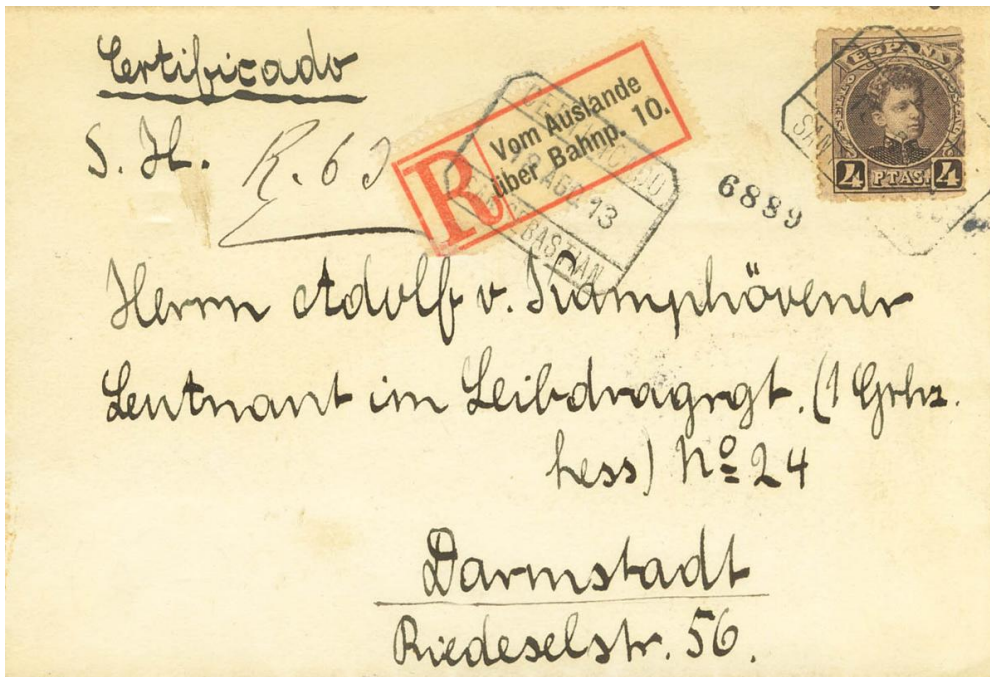 Certificado
S. H.
R. 6
R Vom Auslande
über Bahnp. 10.
AGO 13
SAN SEBASTIAN
6889
ESPAÑA
4 PTAS. 4
Herrn Adolf v. Kamphövener
Leutnant im Leibdragrgt. (1 Grhz.
hess) No 24
Darmstadt
Riedeselstr. 56.